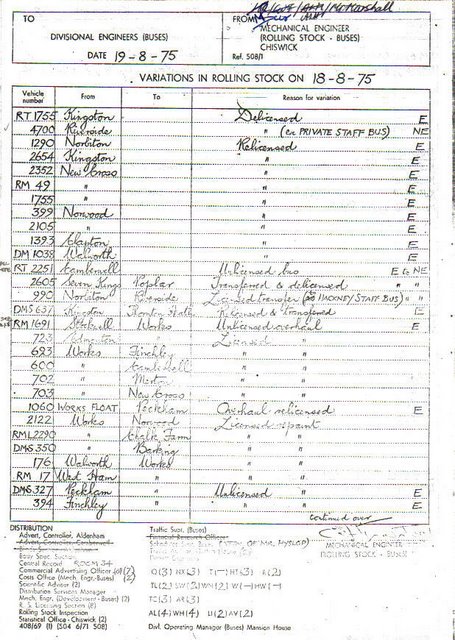 TO
DIVISIONAL ENGINEERS (BUSES)
DATE 19-8-75
FROM
MECHANICAL ENGINEER
(ROLLING STOCK - BUSES)
CHISWICK
Ref. 508/1
VARIATIONS IN ROLLING STOCK ON 18-8-75
Vehicle number From To Reason for variation
RT 1755 Kingston Delicensed E
4700 Riverside " (ex PRIVATE STAFF BUS) NE
1290 Norbiton Relicensed E
2654 Kingston " E
2352 New Cross " E
RM 49 " " E
1755 " " E
399 Norwood " E
2105 " " E
1393 Clapton " E
DM 1038 Walworth " E
RT 2251 Camberwell Unlicensed bus E to NE
2605 Seven Kings Poplar Transferred & delicensed " "
990 Norbiton Riverside Licensed transfer (as HACKNEY STAFF BUS) " "
DMS 637 Kingston Thornton Heath Relicensed & transferred E
RM 1691 Stockwell Works Unlicensed overhaul E
723 Edmonton " Licensed "
623 Works Finchley " "
600 " Camberwell " "
702 " Merton " "
703 " New Cross " "
1060 WORKS FLOAT Peckham Overhaul relicensed E
2122 Works Norwood Licensed repaint
RML 2290 " Chalk Farm " "
DMS 350 " Barking " "
176 Walworth Works " "
RM 17 West Ham " " "
DMS 327 Peckham " Unlicensed " E
394 Finchley " " " E
continued over
DISTRIBUTION
Advert. Controller, Aldenham
Central Record ROOM 34
Commercial Advertising Officer (6) (7)
Costs Office (Mech. Engr.-Buses) (2)
Scientific Adviser (2)
Distribution Services Manager
Mech. Engr. (Development - Buses) (3)
R. S. Licensing Section (8)
Rolling Stock Inspection
Statistical Office - Chiswick (2)
408/69 (1) (SO4 6/71 508)
Traffic Supt. (Buses)
Financial Research Officer
(ATTN OF MR. HYSLOP)
MECHANICAL ENGINEER
(ROLLING STOCK - BUSES)
TC(3) AR(3)
AL(4) WH(4) U(2) AV(2)
Divl. Operating Manager (Buses) Mansion House